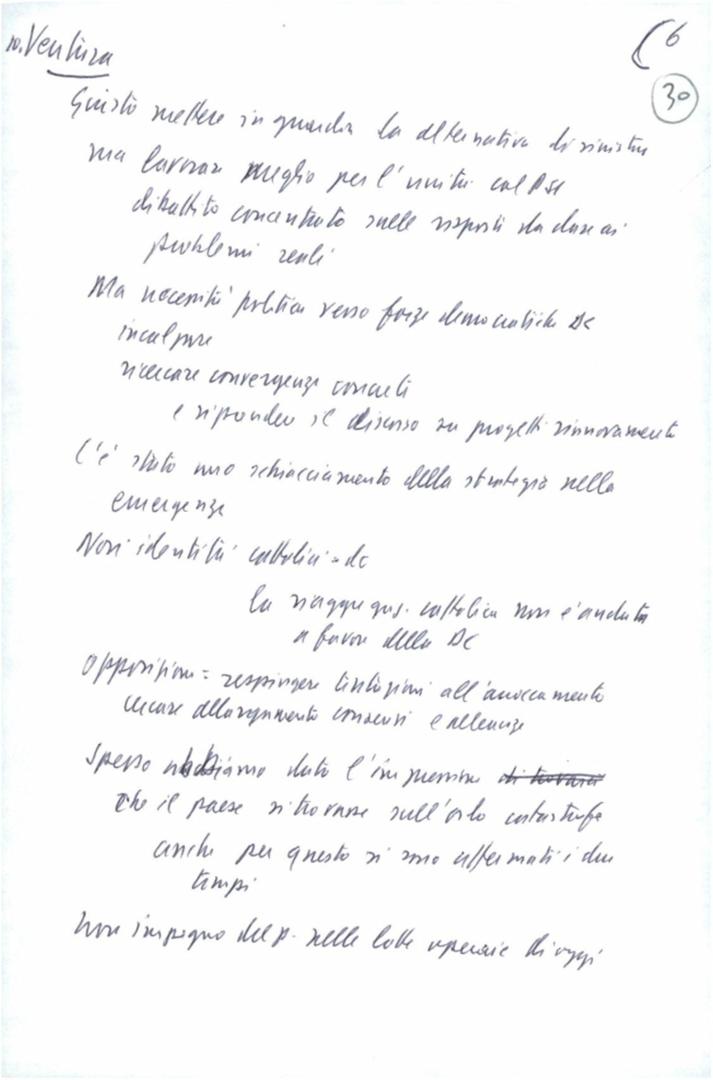 10. Ventura
6
30
Giusto mettere in guardia la alternativa di sinistra
ma lavorare meglio per l'unità col PSI
dibattito concentrato sulle risposte da dare ai
problemi reali
Ma necessità politica verso forze democratiche DC
incalzare
ricercare convergenze concrete
e riprendere il discorso su progetti rinnovamento
C'è stato uno schiacciamento della strategia nella
emergenza
Non identità cattolici = dc
la riaggregaz. cattolica non è andata
a favore della DC
opposizione = respingere tentazioni all'arroccamento
cercare allargamento consensi e alleanze
Spesso abbiamo dato l'impressione di trovarci
che il paese si trovasse sull'orlo catastrofe
anche per questo si sono affermati i due
tempi
impegno del p. nelle lotte operaie di oggi